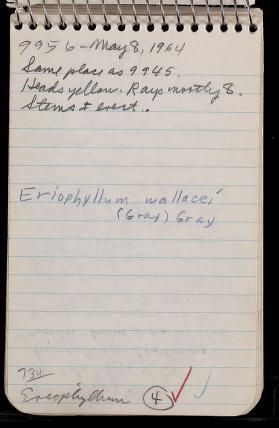 9956 - May 8, 1964
Same place as 9945.
Heads yellow. Rays mostly 8.
Stems ± erect.
Eriophyllum wallacei
(Gray) Gray
Eriophyllum 4